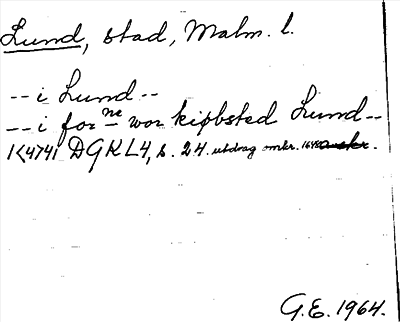 Lund, stad, Malm. l.
-- i Lund --
-- i forne wor kiøbsted Lund --
1<4741 DGKL4, s. 24. utdrag omkr. 1648
G.E. 1964.